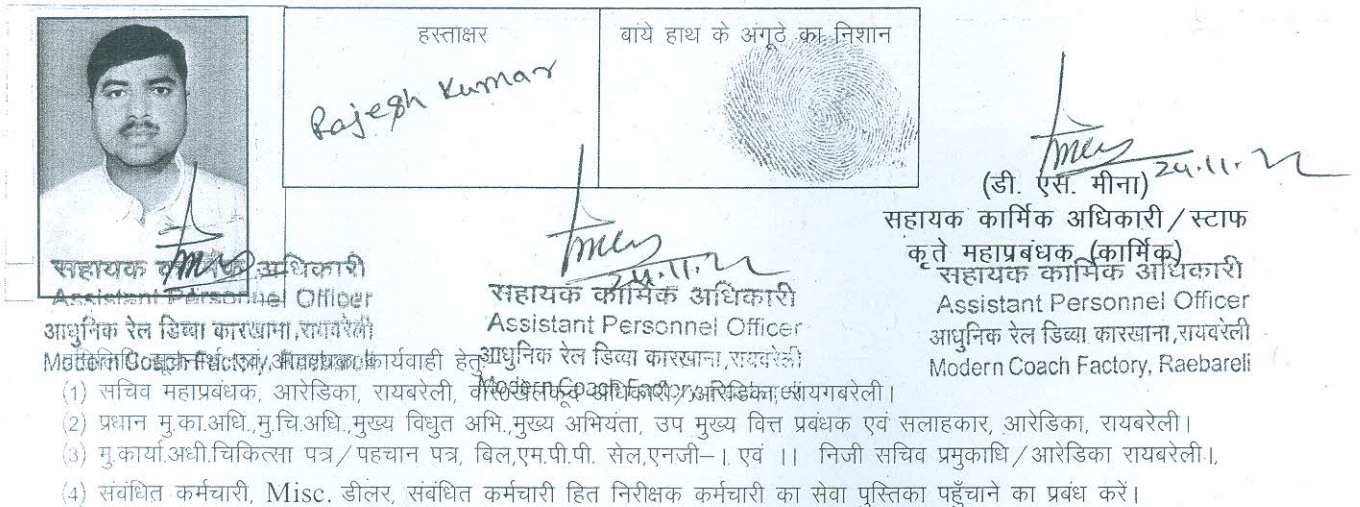 हस्ताक्षर
बाये हाथ के अंगूठे का निशान
Rajesh Kumar
24.11.22
(डी. एस. मीना)
सहायक कार्मिक अधिकारी/स्टाफ
कृते महाप्रबंधक (कार्मिक)
सहायक कार्मिक अधिकारी
Assistant Personnel Officer
आधुनिक रेल डिब्बा कारखाना,रायबरेली
Modern Coach Factory, Raebareli
24.11.22
सहायक कार्मिक अधिकारी
Assistant Personnel Officer
आधुनिक रेल डिब्बा कारखाना,रायबरेली
Modern Coach Factory, Raebareli
सहायक कार्मिक अधिकारी
Assistant Personnel Officer
आधुनिक रेल डिब्बा कारखाना,रायबरेली
Modern Coach Factory, Raebareli
प्रतिलिपि सूचनार्थ एवं आवश्यक कार्यवाही हेतु
(1) सचिव महाप्रबंधक, आरेडिका, रायबरेली, अधिकारी/आरेडिका, रायगबरेली।
(2) प्रधान मु.का.अधि.,मु.चि.अधि.,मुख्य विधुत अभि.,मुख्य अभियंता, उप मुख्य वित्त प्रबंधक एवं सलाहकार, आरेडिका, रायबरेली।
(3) मु.कार्या.अधी.चिकित्सा पत्र/पहचान पत्र, बिल,एम.पी.पी. सेल,एनजी–। एवं ।। निजी सचिव प्रमुकाधि/आरेडिका रायबरेली।,
(4) संबंधित कर्मचारी, Misc. डीलर, संबंधित कर्मचारी हित निरीक्षक कर्मचारी का सेवा पुस्तिका पहुँचाने का प्रबंध करें।